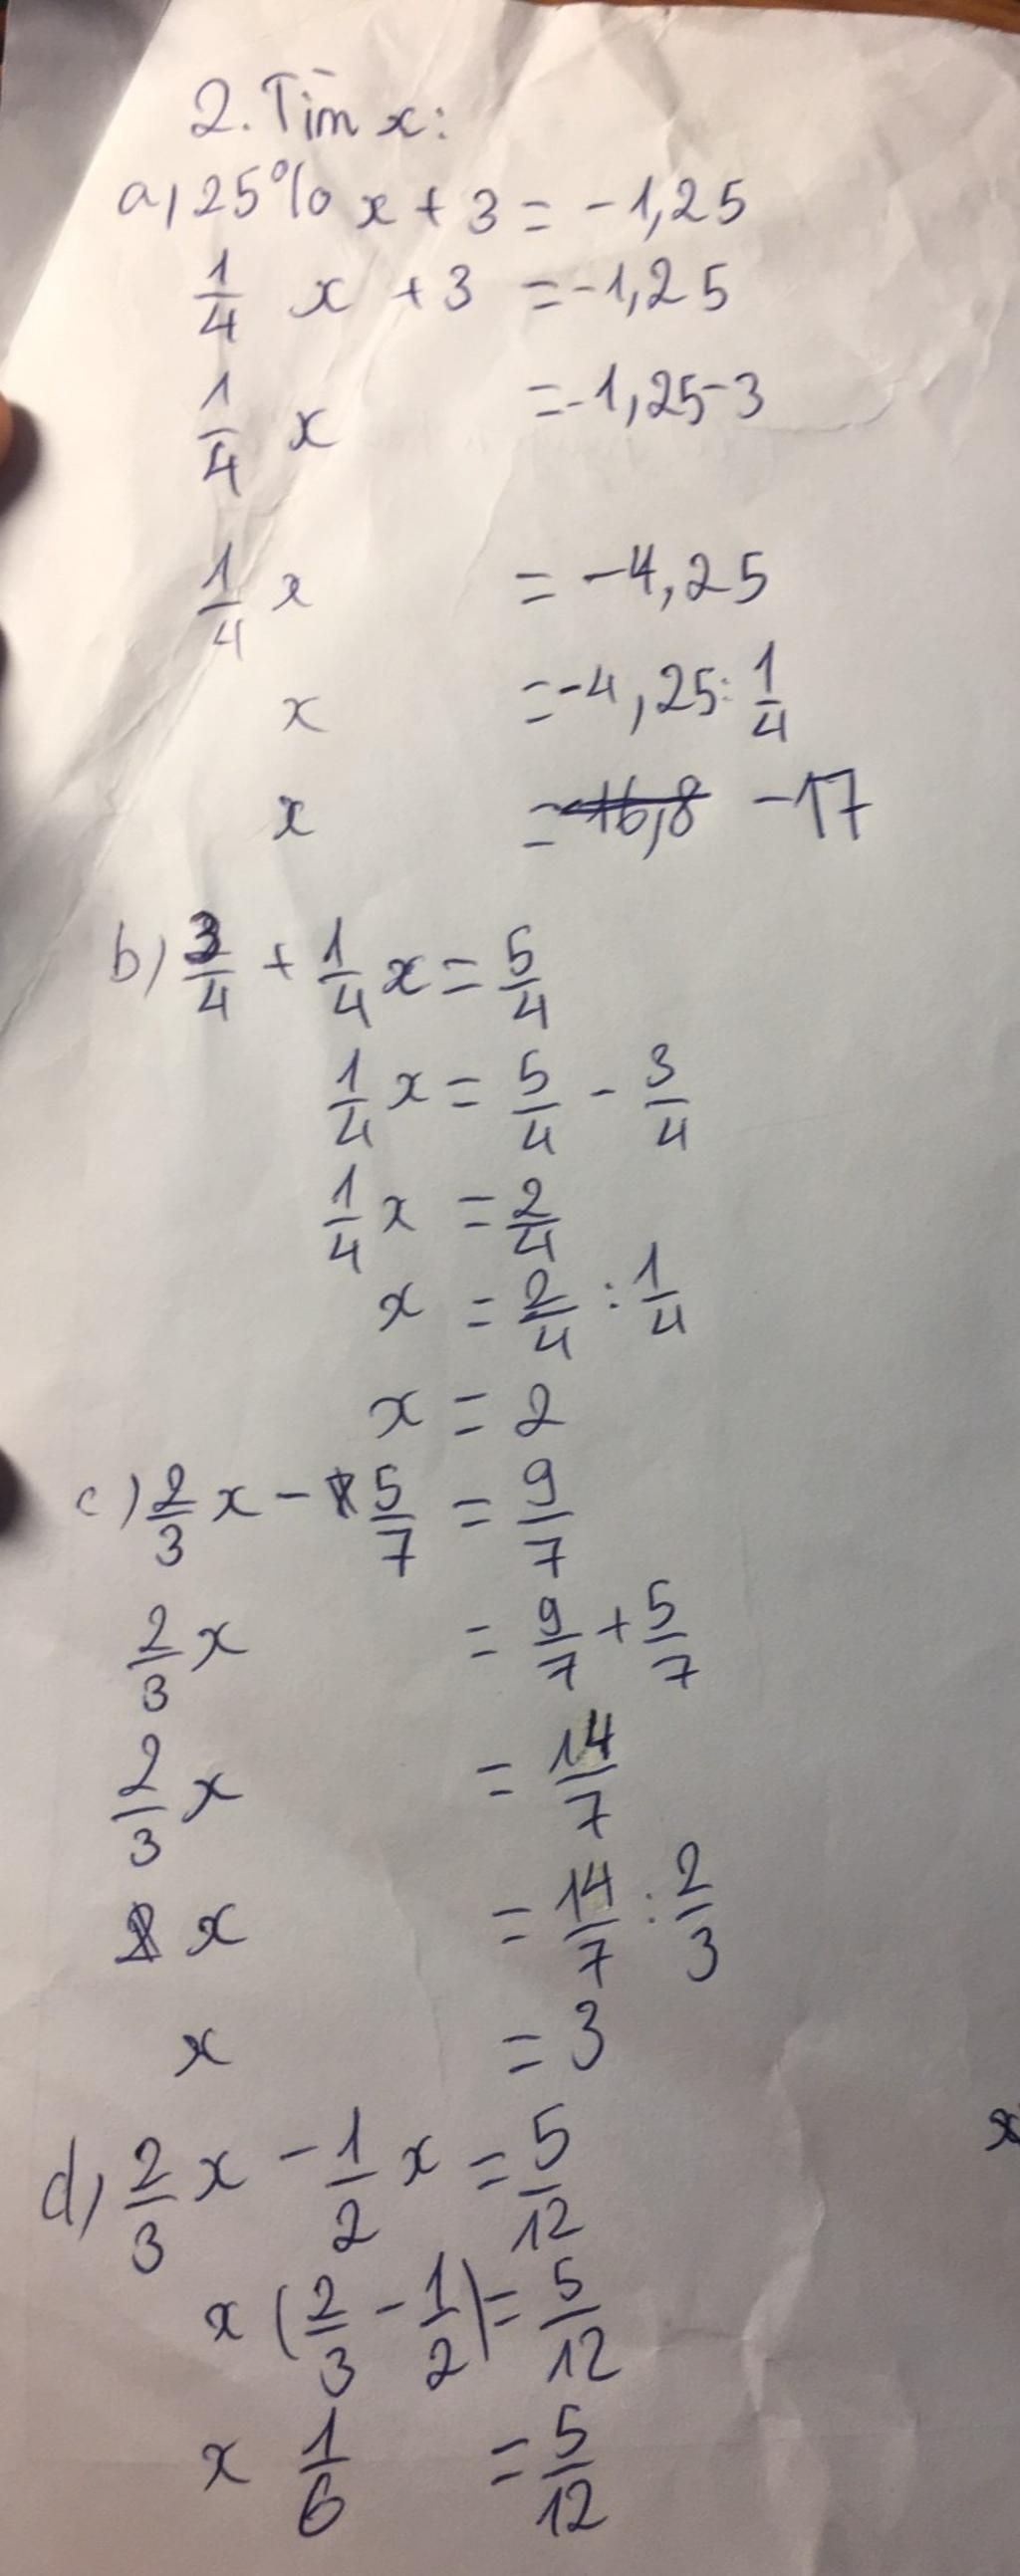 2. Tìm x:
a, 25% x + 3 = -1,25
1/4 x + 3 = -1,25
1/4 x = -1,25 - 3
1/4 x = -4,25
x = -4,25 : 1/4
x = -16,8 -17
b) 3/4 + 1/4 x = 5/4
1/4 x = 5/4 - 3/4
1/4 x = 2/4
x = 2/4 : 1/4
x = 2
c) 2/3 x - 5/7 = 9/7
2/3 x = 9/7 + 5/7
2/3 x = 14/7
x = 14/7 : 2/3
x = 3
d, 2/3 x - 1/2 x = 5/12
x (2/3 - 1/2) = 5/12
x 1/6 = 5/12
x